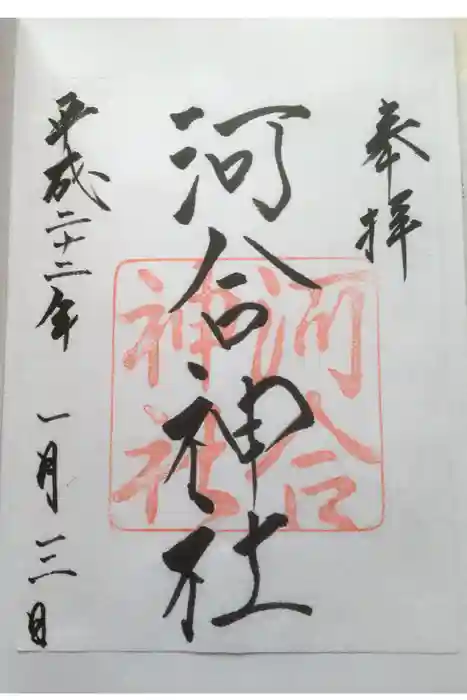 奉拝
河合神社
河合
神社
平成二十二年 一月三日